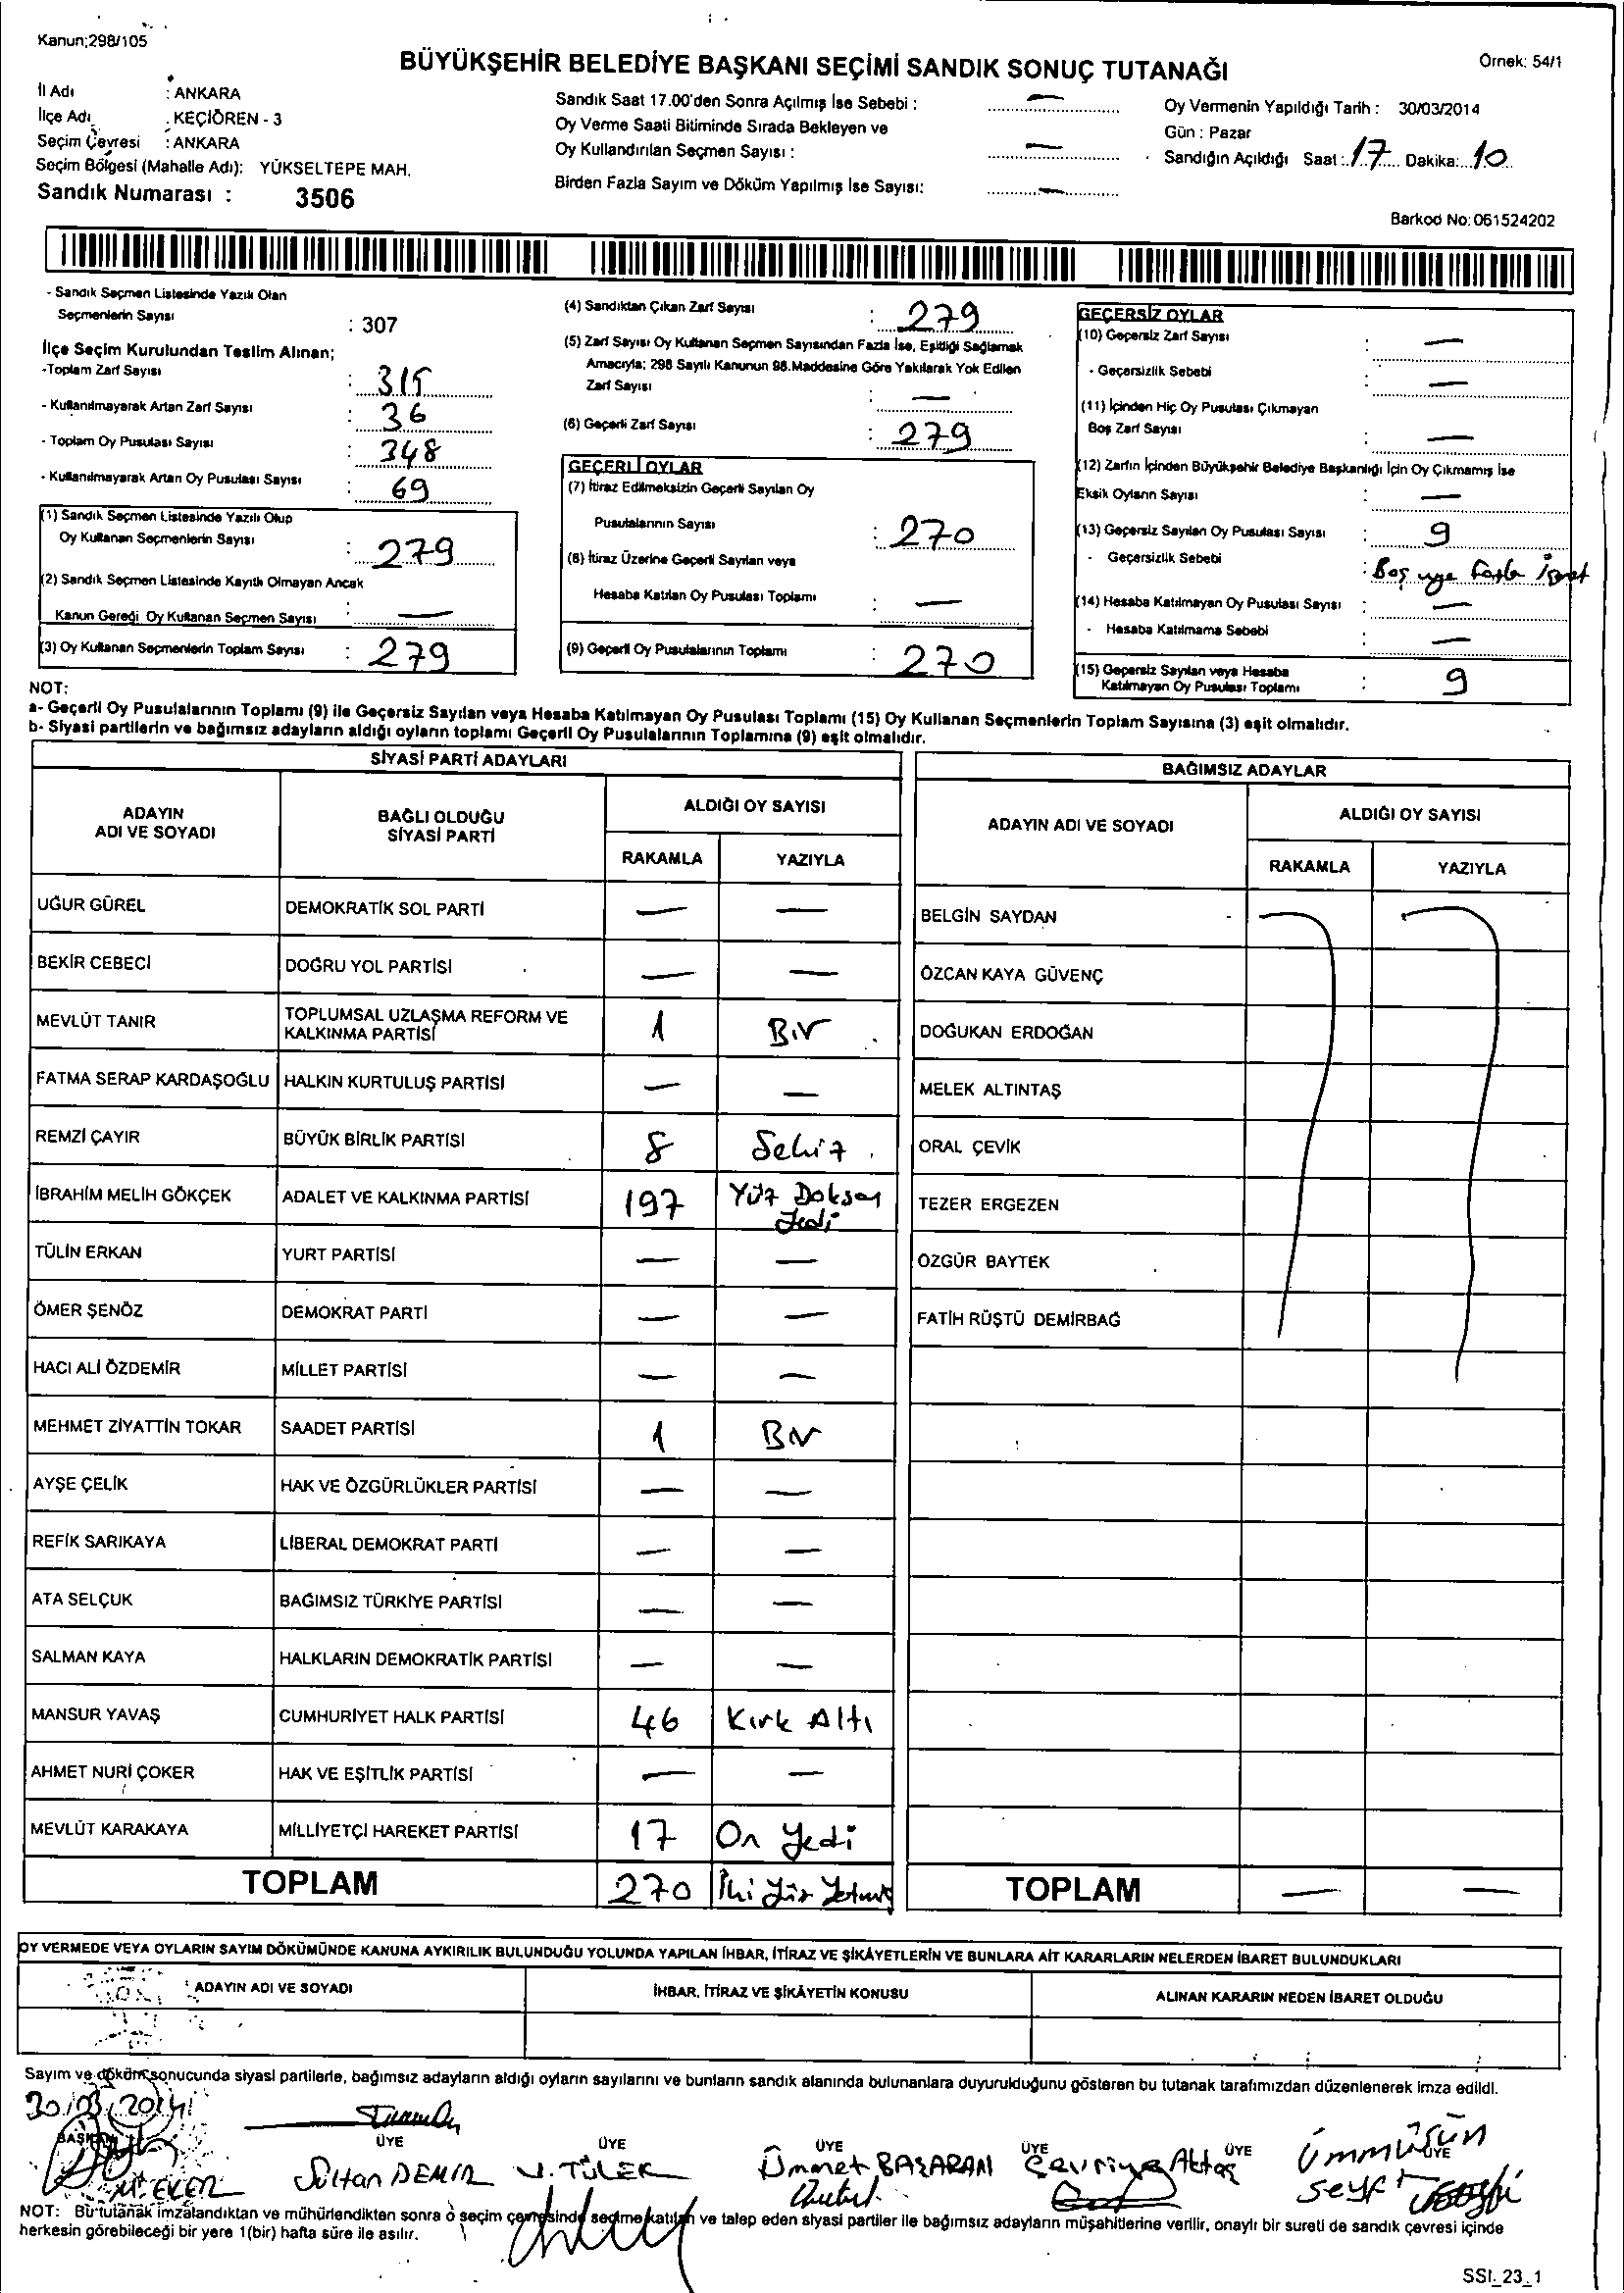 Kanun;298/105
BÜYÜKŞEHİR BELEDİYE BAŞKANI SEÇİMİ SANDIK SONUÇ TUTANAĞI
Örnek: 54/1
İl Adı : ANKARA
İlçe Adı : KEÇİÖREN - 3
Seçim Çevresi : ANKARA
Seçim Bölgesi (Mahalle Adı): YÜKSELTEPE MAH.
Sandık Numarası : 3506
Sandık Saat 17.00'den Sonra Açılmış İse Sebebi : —
Oy Verme Saati Bitiminde Sırada Bekleyen ve
Oy Kullandırılan Seçmen Sayısı : —
Birden Fazla Sayım ve Döküm Yapılmış İse Sayısı: —
Oy Vermenin Yapıldığı Tarih : 30/03/2014
Gün : Pazar
Sandığın Açıldığı Saat : 17 Dakika: 10
Barkod No: 061524202
- Sandık Seçmen Listesinde Yazılı Olan
Seçmenlerin Sayısı : 307
İlçe Seçim Kurulundan Teslim Alınan;
-Toplam Zarf Sayısı : 315
- Kullanılmayarak Artan Zarf Sayısı : 36
- Toplam Oy Pusulası Sayısı : 348
- Kullanılmayarak Artan Oy Pusulası Sayısı : 69
(1) Sandık Seçmen Listesinde Yazılı Olup
Oy Kullanan Seçmenlerin Sayısı : 279
(2) Sandık Seçmen Listesinde Kayıtlı Olmayan Ancak
Kanun Gereği Oy Kullanan Seçmen Sayısı : —
(3) Oy Kullanan Seçmenlerin Toplam Sayısı : 279
(4) Sandıktan Çıkan Zarf Sayısı : 279
(5) Zarf Sayısı Oy Kullanan Seçmen Sayısından Fazla İse, Eşitliği Sağlamak
Amacıyla; 298 Sayılı Kanunun 98.Maddesine Göre Yakılarak Yok Edilen
Zarf Sayısı : —
(6) Geçerli Zarf Sayısı : 279
GEÇERLİ OYLAR
(7) İtiraz Edilmeksizin Geçerli Sayılan Oy
Pusulalarının Sayısı : 270
(8) İtiraz Üzerine Geçerli Sayılan veya
Hesaba Katılan Oy Pusulası Toplamı : —
(9) Geçerli Oy Pusulalarının Toplamı : 270
GEÇERSİZ OYLAR
(10) Geçersiz Zarf Sayısı : —
- Geçersizlik Sebebi : —
(11) İçinden Hiç Oy Pusulası Çıkmayan
Boş Zarf Sayısı : —
(12) Zarfın İçinden Büyükşehir Belediye Başkanlığı İçin Oy Çıkmamış İse
Eksik Oyların Sayısı : —
(13) Geçersiz Sayılan Oy Pusulası Sayısı : 9
- Geçersizlik Sebebi : Boş veya fazla işaret
(14) Hesaba Katılmayan Oy Pusulası Sayısı : —
- Hesaba Katılmama Sebebi : —
(15) Geçersiz Sayılan veya Hesaba
Katılmayan Oy Pusulası Toplamı : 9
NOT:
a- Geçerli Oy Pusulalarının Toplamı (9) ile Geçersiz Sayılan veya Hesaba Katılmayan Oy Pusulası Toplamı (15) Oy Kullanan Seçmenlerin Toplam Sayısına (3) eşit olmalıdır.
b- Siyasi partilerin ve bağımsız adayların aldığı oyların toplamı Geçerli Oy Pusulalarının Toplamına (9) eşit olmalıdır.
SİYASİ PARTİ ADAYLARI
ADAYIN ADI VE SOYADI BAĞLI OLDUĞU SİYASİ PARTİ ALDIĞI OY SAYISI
RAKAMLA YAZIYLA
UĞUR GÜREL DEMOKRATİK SOL PARTİ — —
BEKİR CEBECİ DOĞRU YOL PARTİSİ — —
MEVLÜT TANIR TOPLUMSAL UZLAŞMA REFORM VE KALKINMA PARTİSİ 1 Bir
FATMA SERAP KARDAŞOĞLU HALKIN KURTULUŞ PARTİSİ — —
REMZİ ÇAYIR BÜYÜK BİRLİK PARTİSİ 8 Sekiz
İBRAHİM MELİH GÖKÇEK ADALET VE KALKINMA PARTİSİ 197 Yüz Doksan Yedi
TÜLİN ERKAN YURT PARTİSİ — —
ÖMER ŞENÖZ DEMOKRAT PARTİ — —
HACI ALİ ÖZDEMİR MİLLET PARTİSİ — —
MEHMET ZİYATTİN TOKAR SAADET PARTİSİ 1 Bir
AYŞE ÇELİK HAK VE ÖZGÜRLÜKLER PARTİSİ — —
REFİK SARIKAYA LİBERAL DEMOKRAT PARTİ — —
ATA SELÇUK BAĞIMSIZ TÜRKİYE PARTİSİ — —
SALMAN KAYA HALKLARIN DEMOKRATİK PARTİSİ — —
MANSUR YAVAŞ CUMHURİYET HALK PARTİSİ 46 Kırk Altı
AHMET NURİ ÇOKER HAK VE EŞİTLİK PARTİSİ — —
MEVLÜT KARAKAYA MİLLİYETÇİ HAREKET PARTİSİ 17 On Yedi
TOPLAM 270 İki Yüz Yetmiş
BAĞIMSIZ ADAYLAR
ADAYIN ADI VE SOYADI ALDIĞI OY SAYISI
RAKAMLA YAZIYLA
BELGİN SAYDAN
ÖZCAN KAYA GÜVENÇ
DOĞUKAN ERDOĞAN
MELEK ALTINTAŞ
ORAL ÇEVİK
TEZER ERGEZEN
ÖZGÜR BAYTEK
FATİH RÜŞTÜ DEMİRBAĞ
TOPLAM — —
OY VERMEDE VEYA OYLARIN SAYIM DÖKÜMÜNDE KANUNA AYKIRILIK BULUNDUĞU YOLUNDA YAPILAN İHBAR, İTİRAZ VE ŞİKÂYETLERİN VE BUNLARA AİT KARARLARIN NELERDEN İBARET BULUNDUKLARI
ADAYIN ADI VE SOYADI İHBAR, İTİRAZ VE ŞİKÂYETİN KONUSU ALINAN KARARIN NEDEN İBARET OLDUĞU
Sayım ve döküm sonucunda siyasi partilerle, bağımsız adayların aldığı oyların sayılarını ve bunların sandık alanında bulunanlara duyurulduğunu gösteren bu tutanak tarafımızdan düzenlenerek imza edildi.
30/03/2014
BAŞKAN ÜYE ÜYE ÜYE ÜYE ÜYE ÜYE
M. EKER Sultan DEMİR V. TÜLEK Ümmet BAŞARAN Çevriye Aktaş Ümmügün
NOT: Bu tutanak imzalandıktan ve mühürlendikten sonra o seçim çevresinde seçime katılan ve talep eden siyasi partiler ile bağımsız adayların müşahitlerine verilir, onaylı bir sureti de sandık çevresi içinde
herkesin görebileceği bir yere 1(bir) hafta süre ile asılır.
SSI_23_1